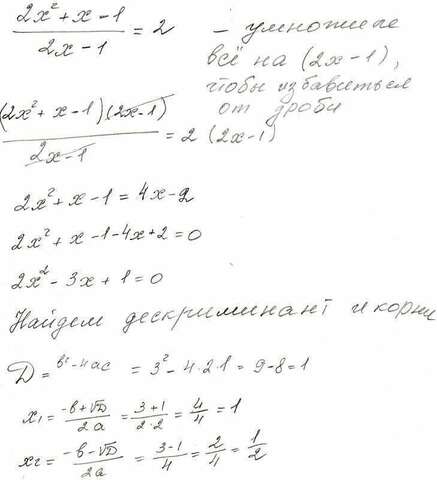 (2x² + x - 1)/(2x - 1) = 2 – умножили
всё на (2x-1),
чтобы избавиться
от дроби
(2x² + x - 1)(2x-1)/(2x-1) = 2 (2x-1)
2x² + x - 1 = 4x - 2
2x² + x - 1 - 4x + 2 = 0
2x² - 3x + 1 = 0
Найдем дескриминант и корни
D = b² - 4ac = 3² - 4·2·1 = 9 - 8 = 1
x₁ = (-b + √D)/2a = (3 + 1)/(2·2) = 4/4 = 1
x₂ = (-b - √D)/2a = (3 - 1)/4 = 2/4 = 1/2